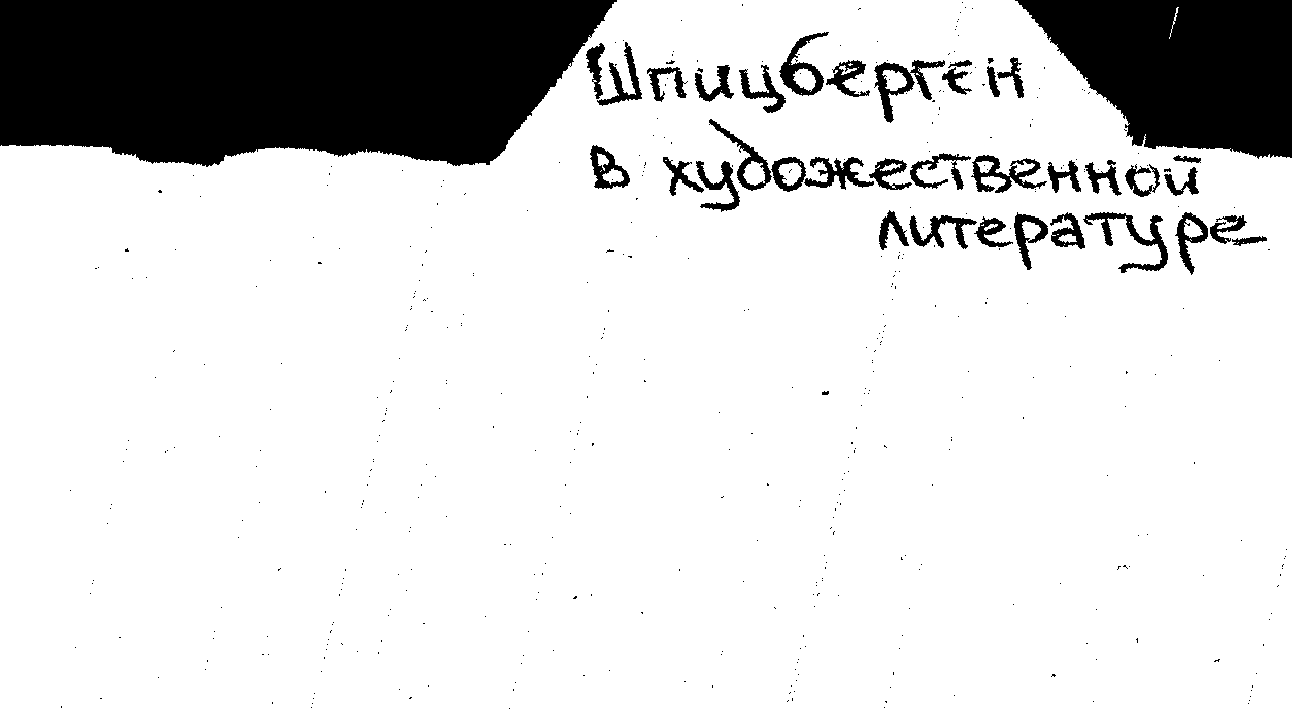 Шпицберген
в художественной
литературе